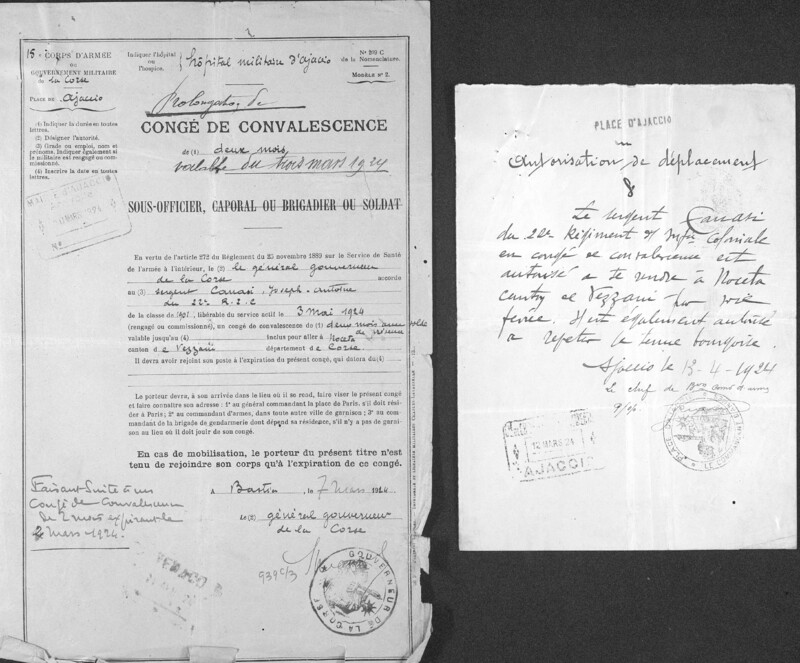 15e CORPS D'ARMÉE
OU
GOUVERNEMENT MILITAIRE
de la Corse
PLACE DE Ajaccio
(1) Indiquer la durée en toutes
lettres.
(2) Désigner l'autorité.
(3) Grade ou emploi, nom et
prénoms. Indiquer également si
le militaire est rengagé ou com-
missionné.
(4) Inscrire la date en toutes
lettres.
Indiquer l'hôpital
ou
l'hospice.
hôpital militaire d'Ajaccio
N° 290 C
de la Nomenclature.
MODÈLE N° 2.
Prolongation de
CONGÉ DE CONVALESCENCE
de (1) deux mois
valable du trois mars 1924
SOUS-OFFICIER, CAPORAL OU BRIGADIER OU SOLDAT
En vertu de l'article 272 du Règlement du 25 novembre 1889 sur le Service de Santé
de l'armée à l'intérieur, le (2) le général gouverneur
de la Corse accorde
au (3) sergent Canasi, Joseph-Antoine
du 22e R.I.C
de la classe de 1921, libérable du service actif le 3 Mai 1924
(rengagé ou commissionné), un congé de convalescence de (1) deux mois avec solde
de présence
valable jusqu'au (4) inclus pour aller à Noceta
canton de Vezzani département de Corse
Il devra avoir rejoint son poste à l'expiration du présent congé, qui datera du (4)
Le porteur devra, à son arrivée dans le lieu où il se rend, faire viser le présent congé
et faire connaître son adresse : 1° au général commandant la place de Paris, s'il doit rési-
der à Paris; 2° au commandant d'armes, dans toute autre ville de garnison; 3° au com-
mandant de la brigade de gendarmerie dont dépend sa résidence, s'il n'y a pas de garni-
son au lieu où il doit jouir de son congé.
En cas de mobilisation, le porteur du présent titre n'est
tenu de rejoindre son corps qu'à l'expiration de ce congé.
A Bastia, le 7 Mars 1924
Le (2) général gouverneur
de la Corse
Faisant Suite à un
Congé de Convalescence
de 2 mois expirant le
2 Mars 1924.
939 c/3
GOUVERNEUR DE LA CORSE
PLACE D'AJACCIO
Autorisation de déplacement
Le sergent Canasi
du 22e Régiment d'Infie Coloniale
en congé de convalescence est
autorisé à se rendre à Noceta
canton de Vezzani par voie
ferrée. Il est également autorisé
à répéter la tenue bourgeoise.
Ajaccio le 13-4-1924
Le chef de Bon Comt d'armes
12 MARS 24
AJACCIO